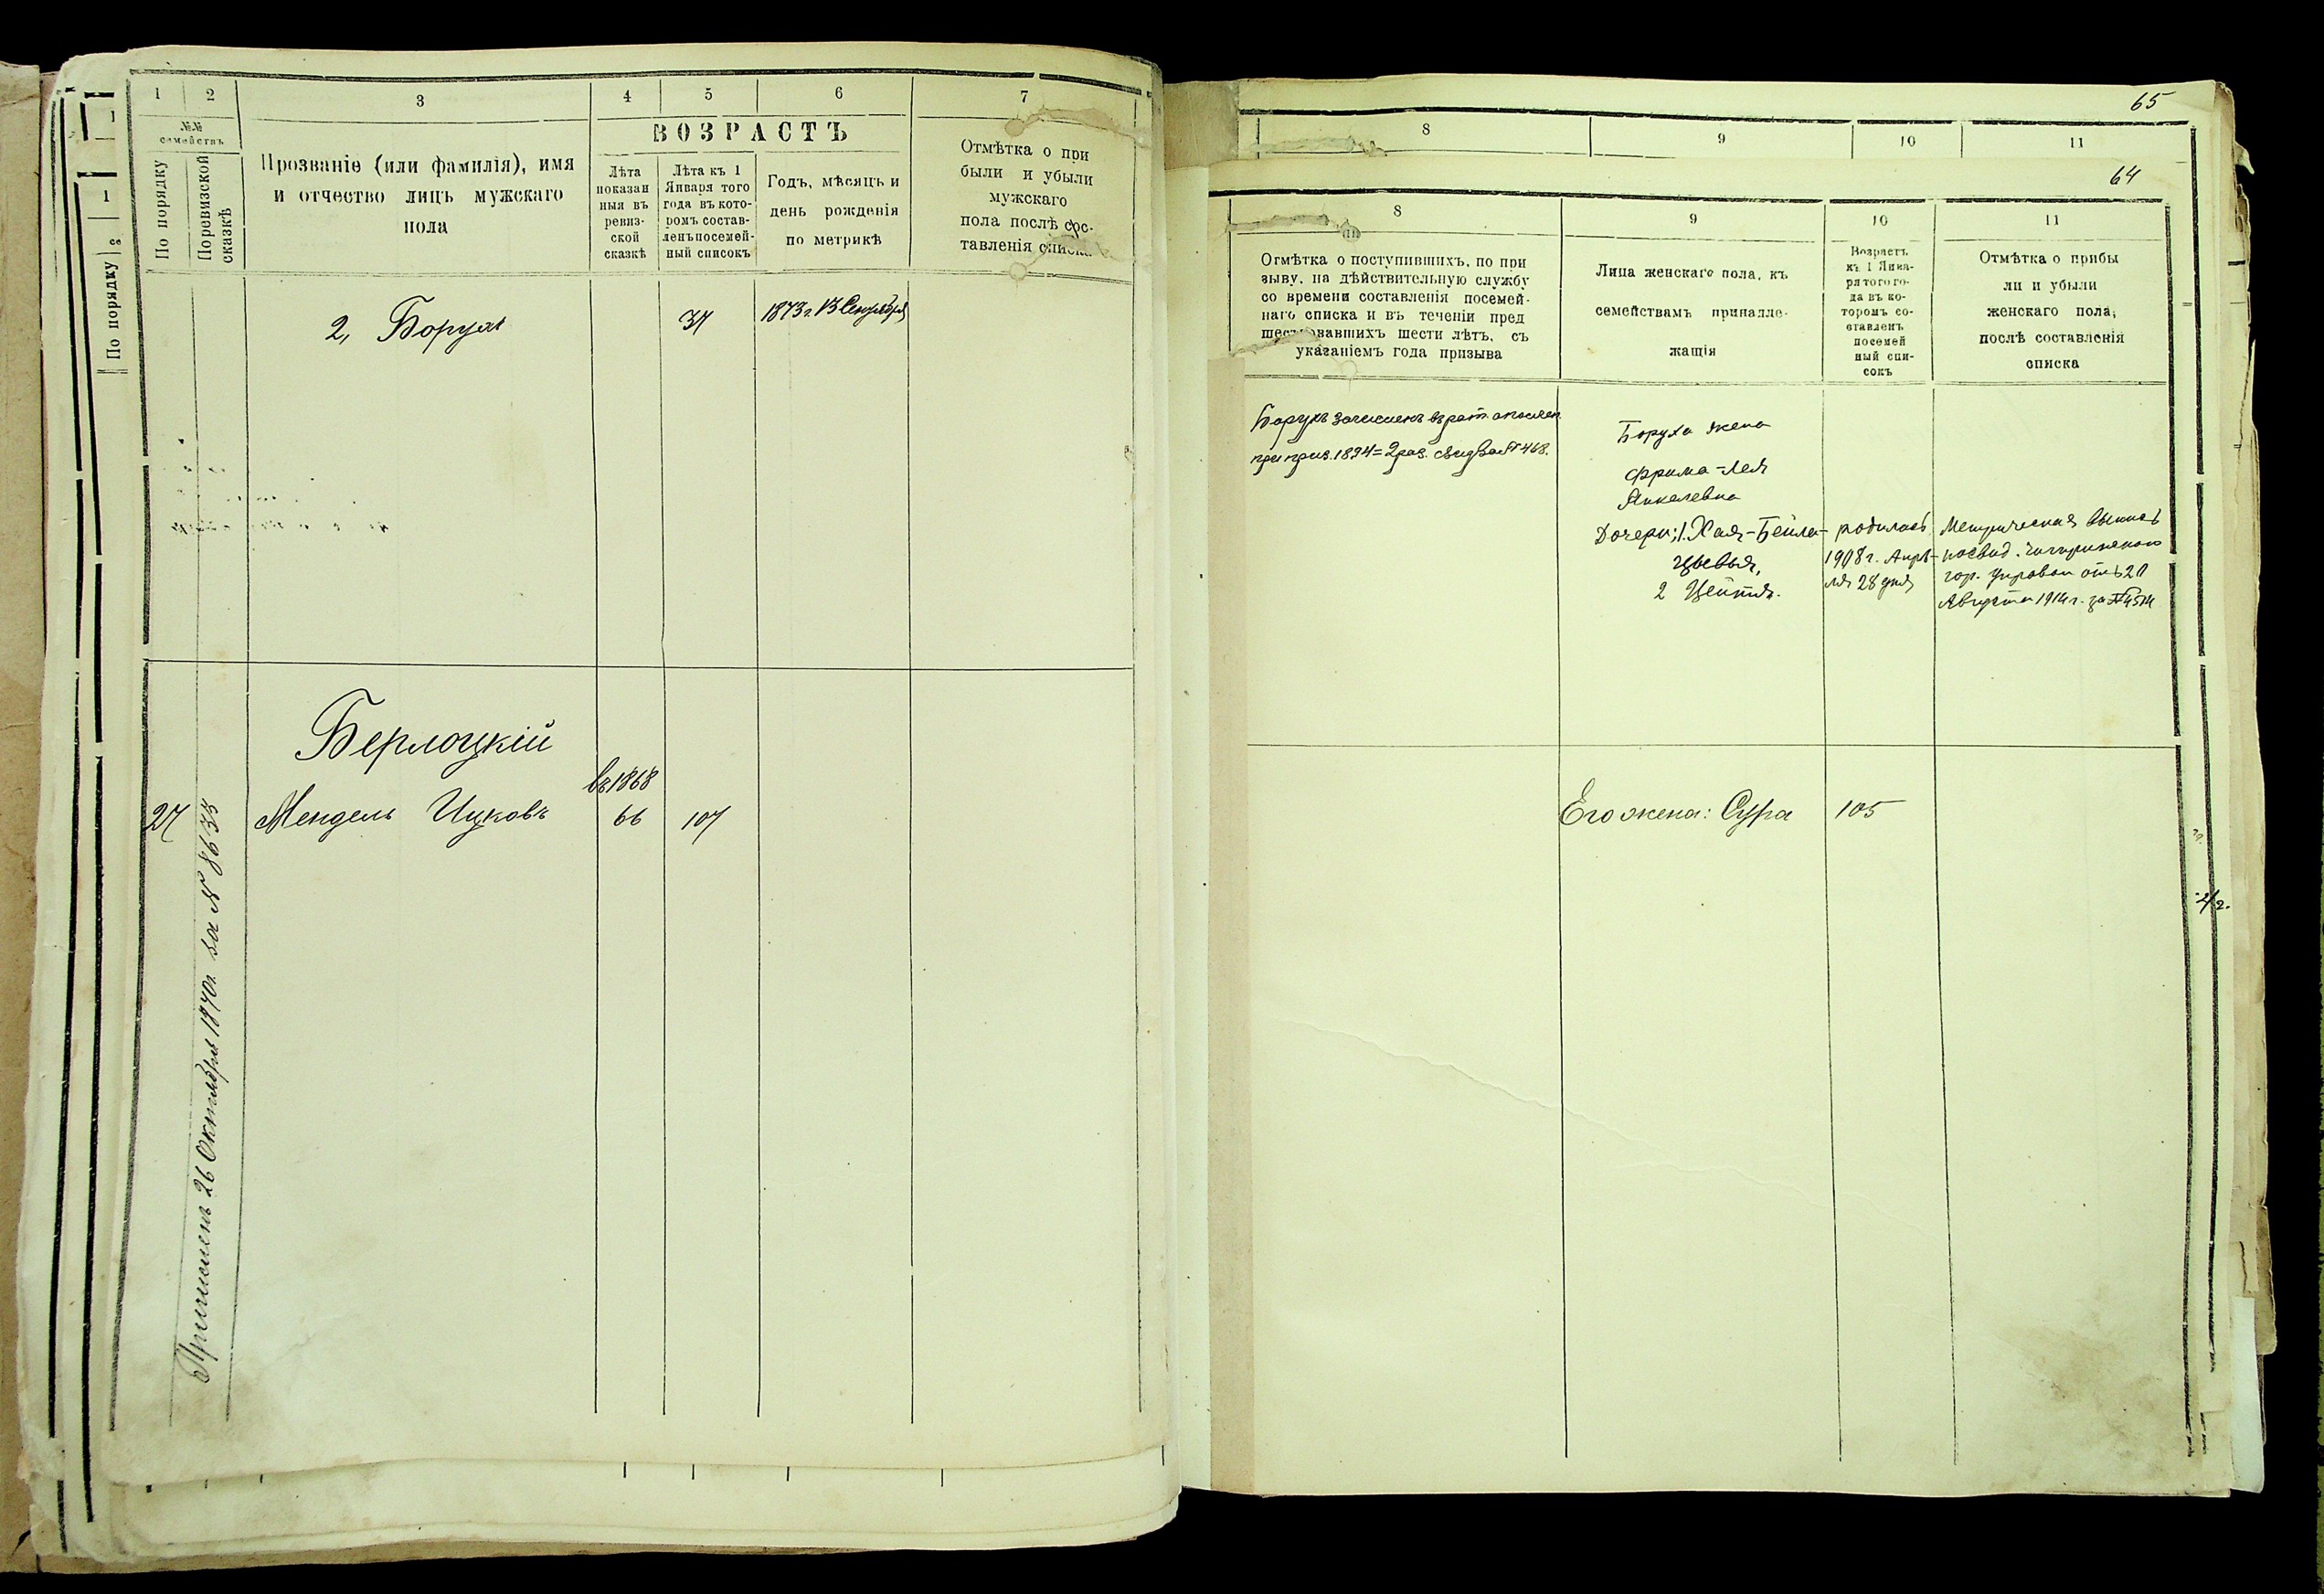 1
2
3
4
5
6
7
№№
семействъ
По порядку
По ревизской
сказкѣ
Прозваніе (или фамилія), имя
и отчество лицъ мужскаго
пола
ВОЗРАСТЪ
Лѣта
показан
ныя въ
ревиз-
ской
сказкѣ
Лѣта къ 1
Января того
года въ кото-
ромъ состав-
ленъ посемей-
ный списокъ
Годъ, мѣсяцъ и
день рожденія
по метрикѣ
Отмѣтка о при
были и убыли
мужскаго
пола послѣ сос-
тавленія списка
2, Борухъ
37
1873 г. 13 Сентября
Берлоцкій
27
Мендель Ицковъ
въ 1868
66
107
Причисленъ 26 Октября 1870 г. за № 8635
1
1
По порядку
65
8
9
10
11
64
8
9
10
11
Отмѣтка о поступившихъ, по при
зыву, на дѣйствительную службу
со времени составленія посемей-
наго списка и въ теченіи пред
шествовавшихъ шести лѣтъ, съ
указаніемъ года призыва
Лица женскаго пола, къ
семействамъ принадле-
жащія
Возрастъ
къ 1 Янва-
ря того го-
да въ ко-
торомъ со-
ставленъ
посемей
ный спи-
сокъ
Отмѣтка о прибы
ли и убыли
женскаго пола,
послѣ составленія
списка
Борухъ зачисленъ въ рат. ополчен.
при приз. 1894 = 2 раз. свид. за № 468.
Боруха жена
Фрима-Лея
Янкелевна
Дочери: 1. Хая-Бейла-
Цывья,
2 Цейтля.
родилась
1908 г. Апрѣ-
ля 28 дня
Метрическая выпись
по свид. Чигиринской
гор. Управы отъ 20
Августа 1914 г. за № 4514
Его жена: Сура
105